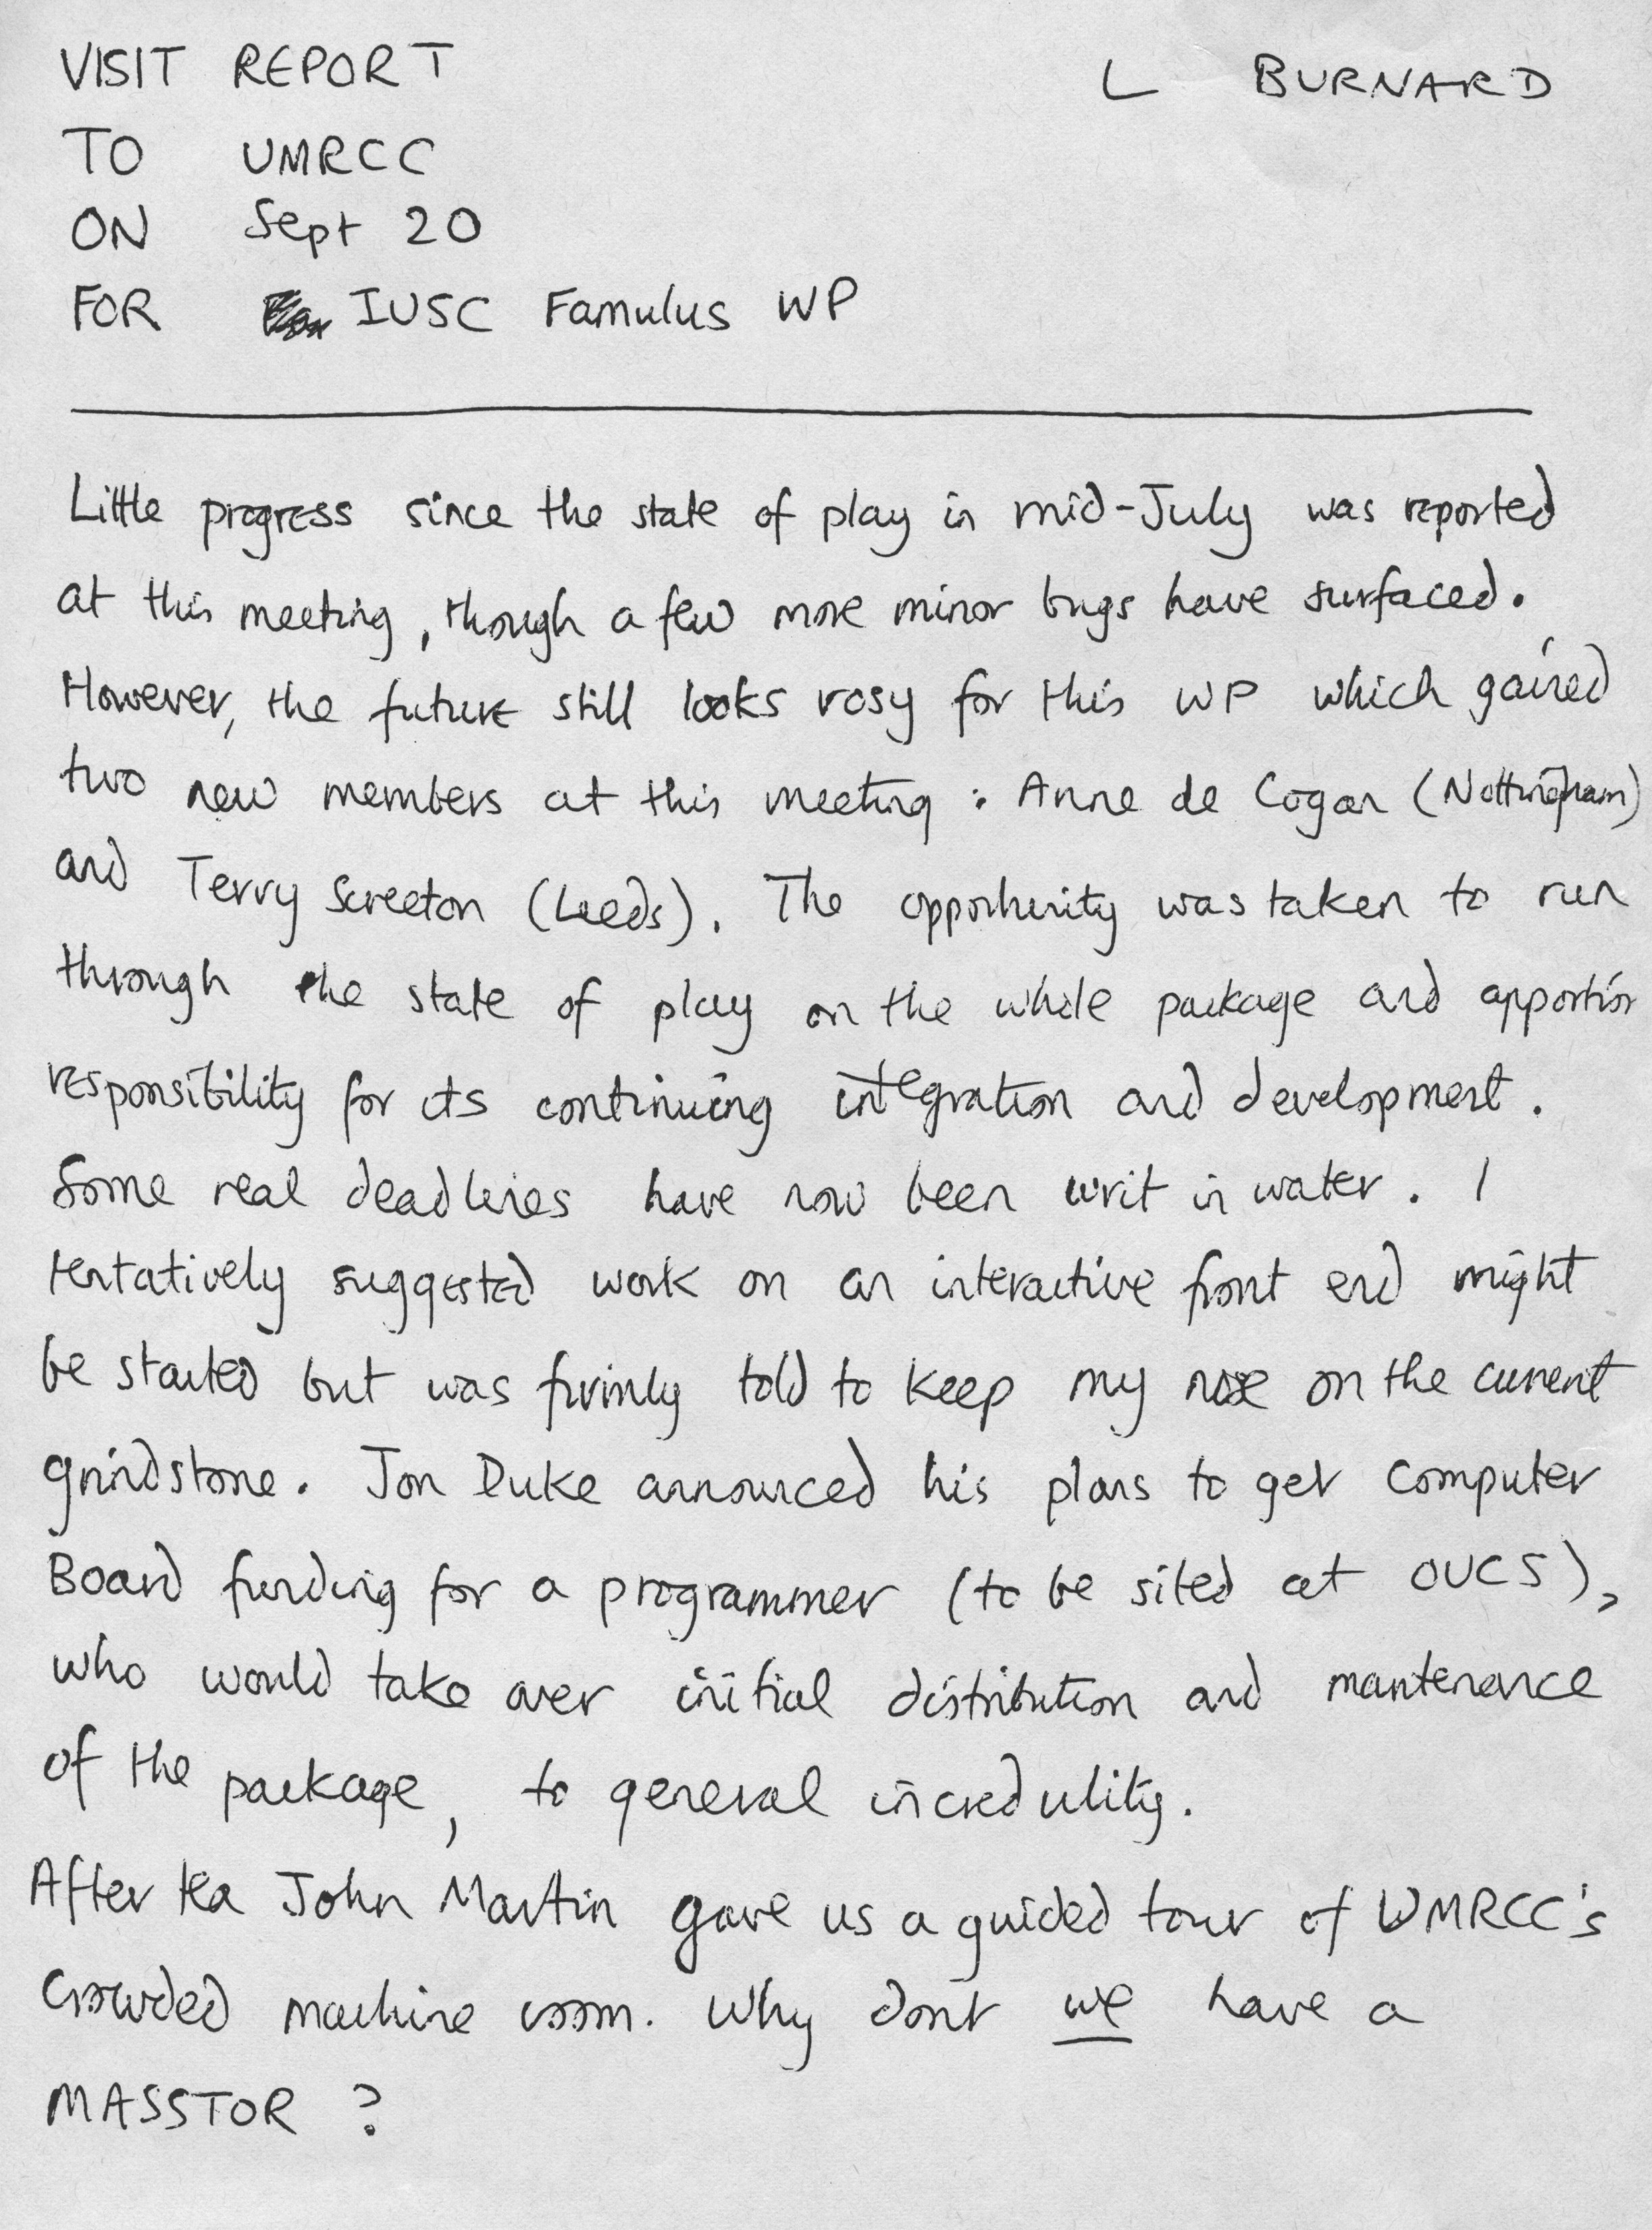 VISIT REPORT L BURNARD
TO UMRCC
ON Sept 20
FOR IUSC Famulus WP
Little progress since the state of play in mid-July was reported
at this meeting, though a few more minor bugs have surfaced.
However, the future still looks rosy for this WP which gained
two new members at this meeting : Anne de Cogan (Nottingham)
and Terry Screeton (Leeds). The opportunity was taken to run
through the state of play on the whole package and apportion
responsibility for its continuing integration and development.
Some real deadlines have now been writ in water. I
tentatively suggested work on an interactive front end might
be started but was firmly told to keep my nose on the current
grindstone. Jon Duke announced his plans to get Computer
Board funding for a programmer (to be sited at OUCS),
who would take over initial distribution and mantenance
of the package, to general incredulity.
After tea John Martin gave us a guided tour of UMRCC's
crowded machine room. Why dont we have a
MASSTOR ?